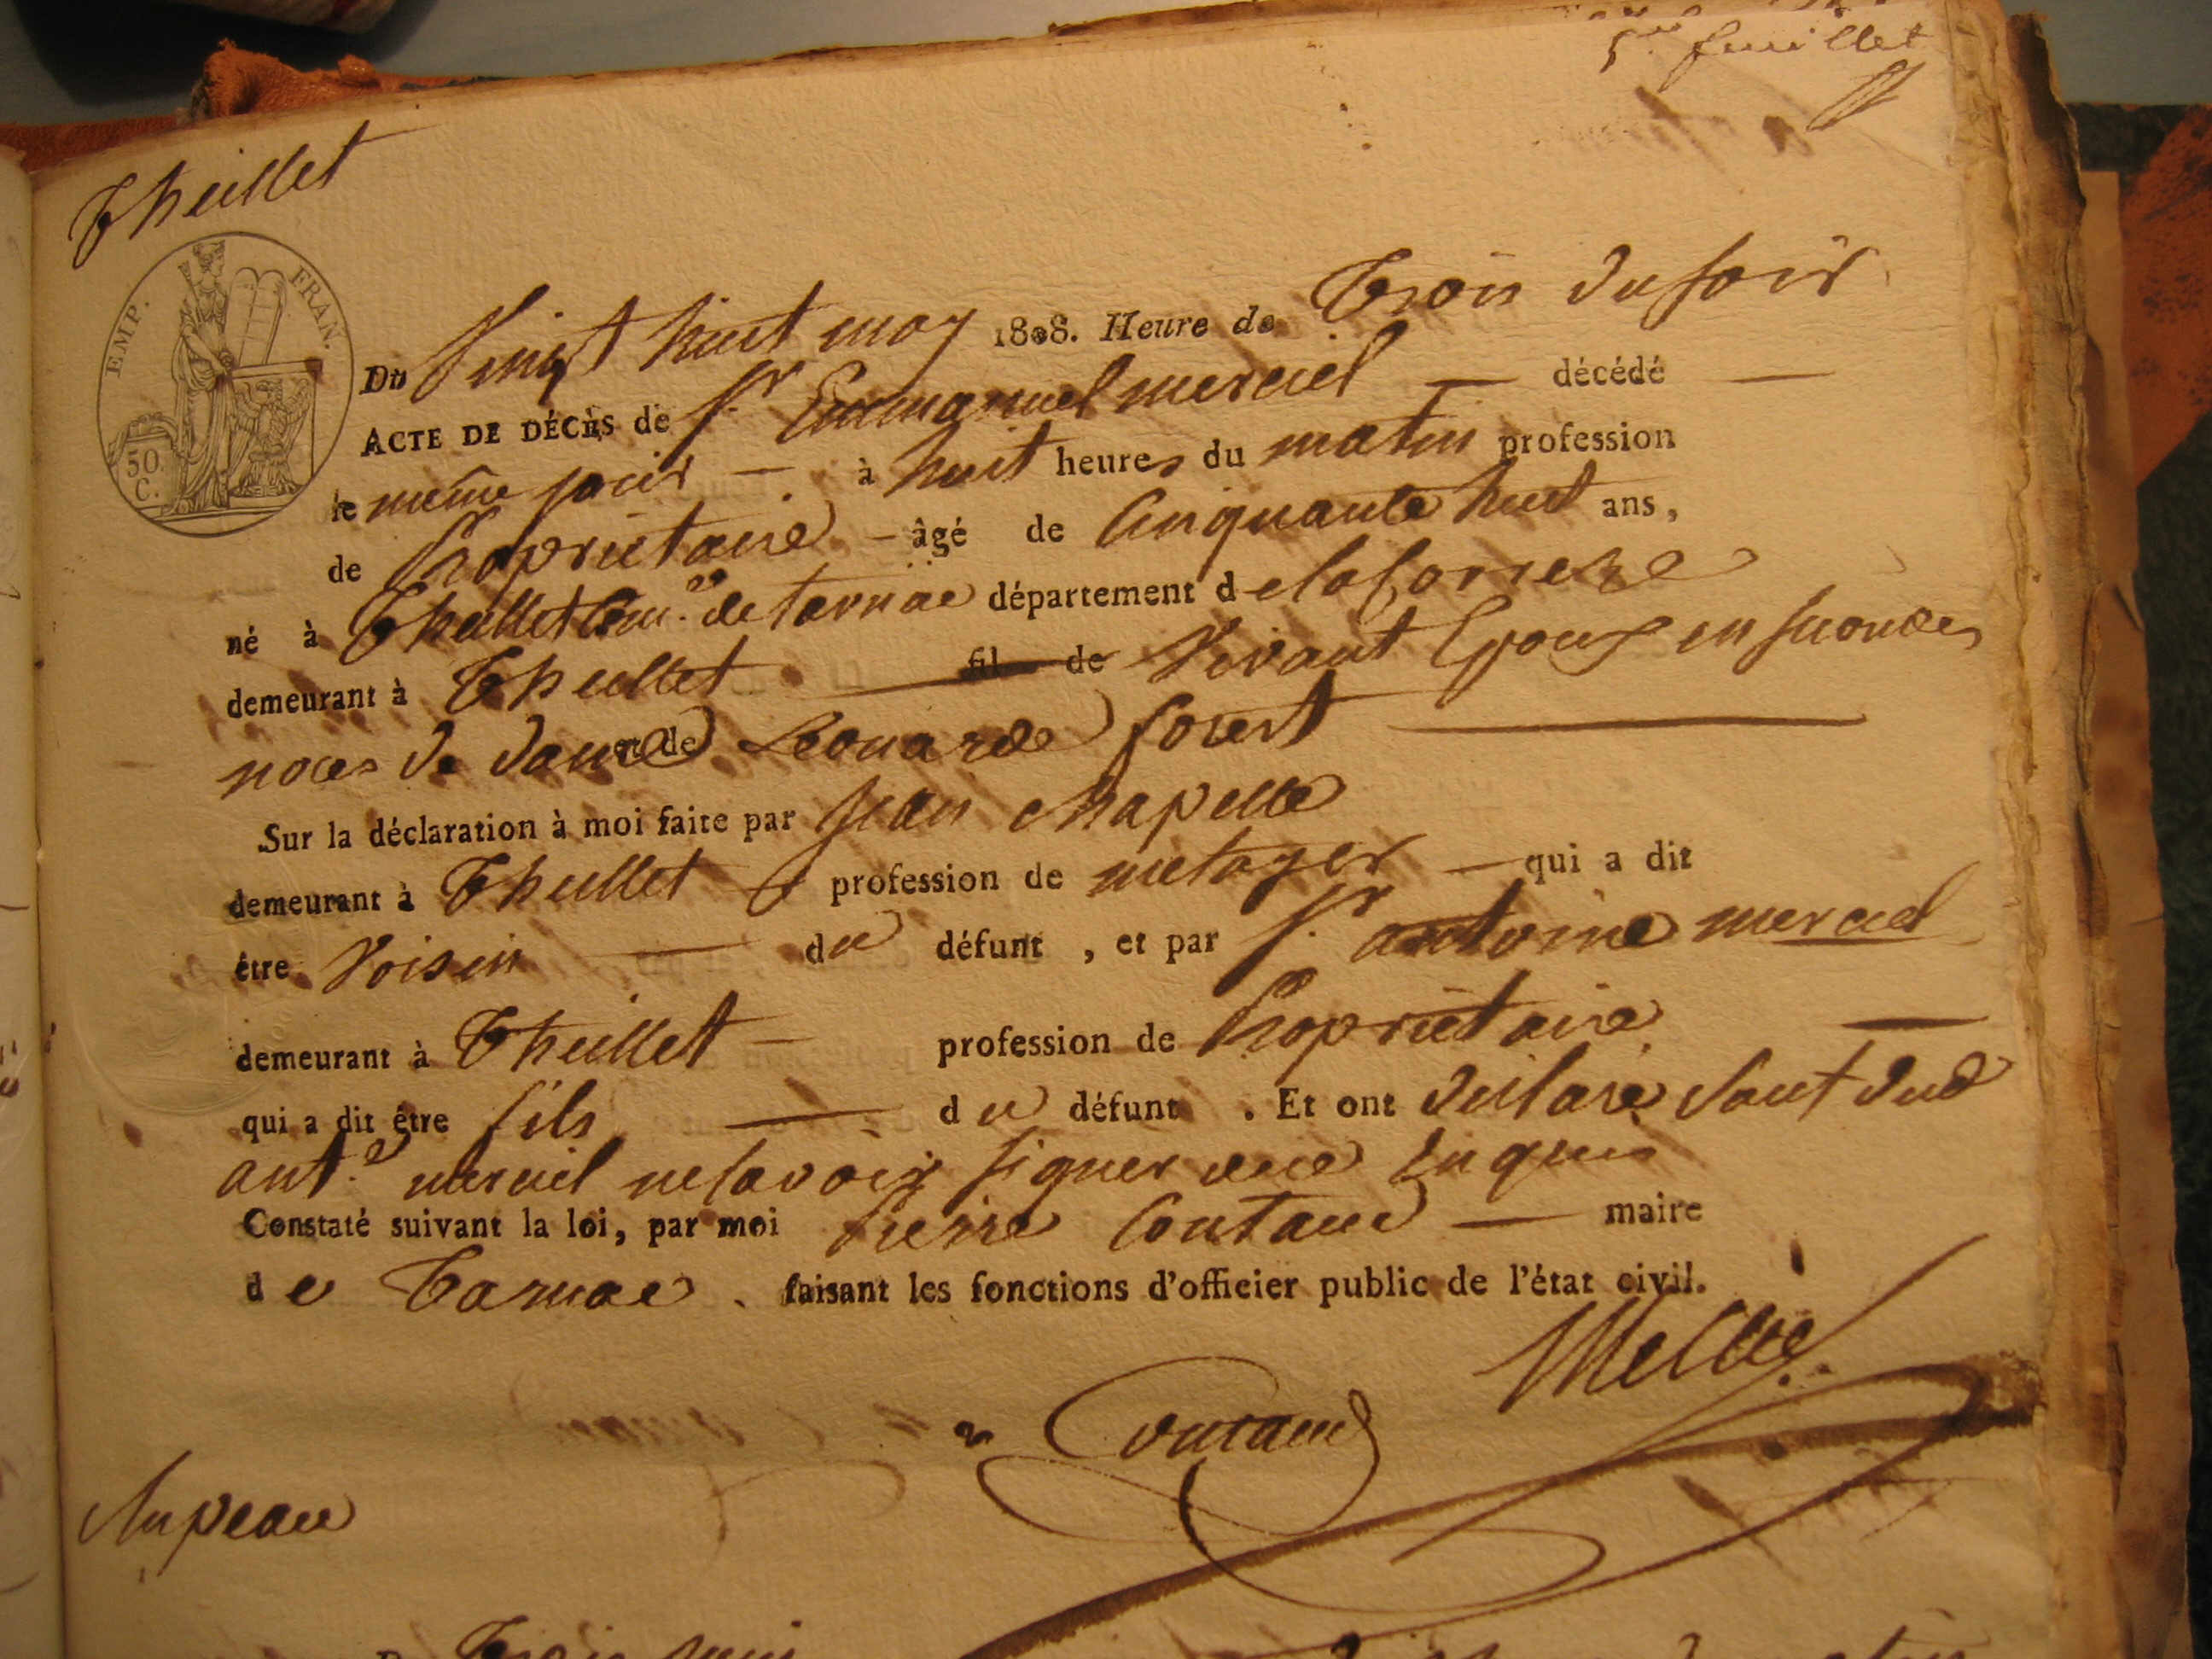 5me feuillet
Theillet
EMP. FRAN.
50 C.
Du Vingt huit may 1808. Heure de Trois du soir
ACTE DE DÉCÈS de Sr Emmanuel merciel — décédé —
le même jour — à huit heures du matin profession
de Propriétaire — âgé de Cinquante huit ans,
né à Theillet Comne de tarnac département de la Correze
demeurant à Theillet fil de Vivant Epoux en secondes
noces de dame et de Léonarde forest
Sur la déclaration à moi faite par Jean chapelle
demeurant à Theillet profession de metayer — qui a dit
être Voisin — du défunt , et par Sr antoine merciel
demeurant à Theillet — profession de Propriétaire —
qui a dit être fils — du défunt . Et ont déclaré sauf dud
ant.e merciel ne savoir signer de ce Enquis
Constaté suivant la loi, par moi Pierre Coutaud — maire
de Tarnac . faisant les fonctions d'officier public de l'état civil.
Coutaud
Supeau
Trois juin